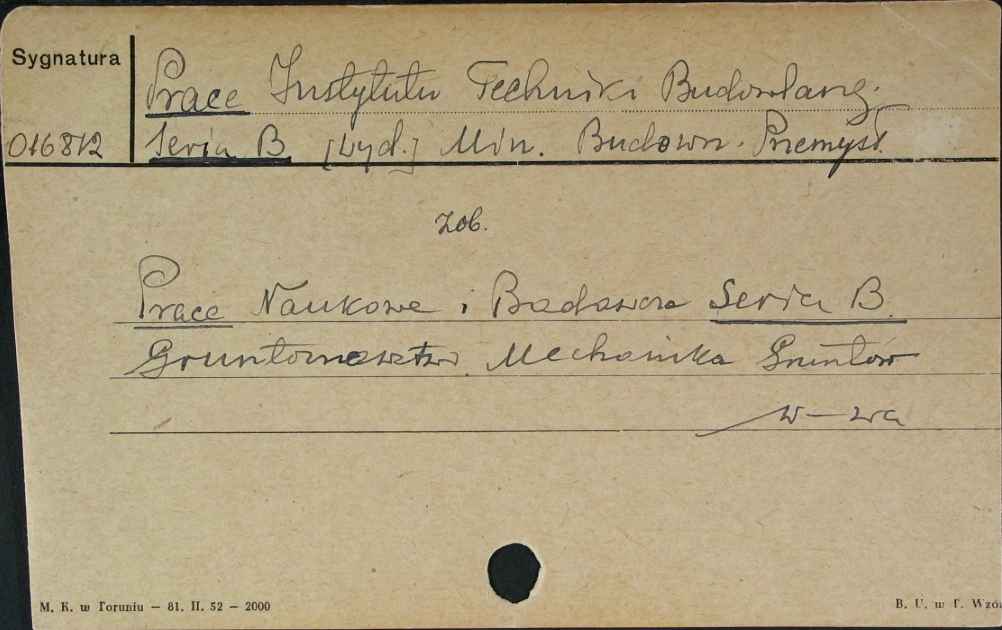 Sygnatura
Prace Instytutu Techniki Budowlang.
016812
Seria B [Wyd.] Min. Budown. Przemysł.
zob.
Prace Naukowe i Badawcze Seria B.
Gruntoznawstwo. Mechanika Gruntów
W-wa
M. K. w Toruniu — 81. II. 52 — 2000
B. U. w T. Wzór